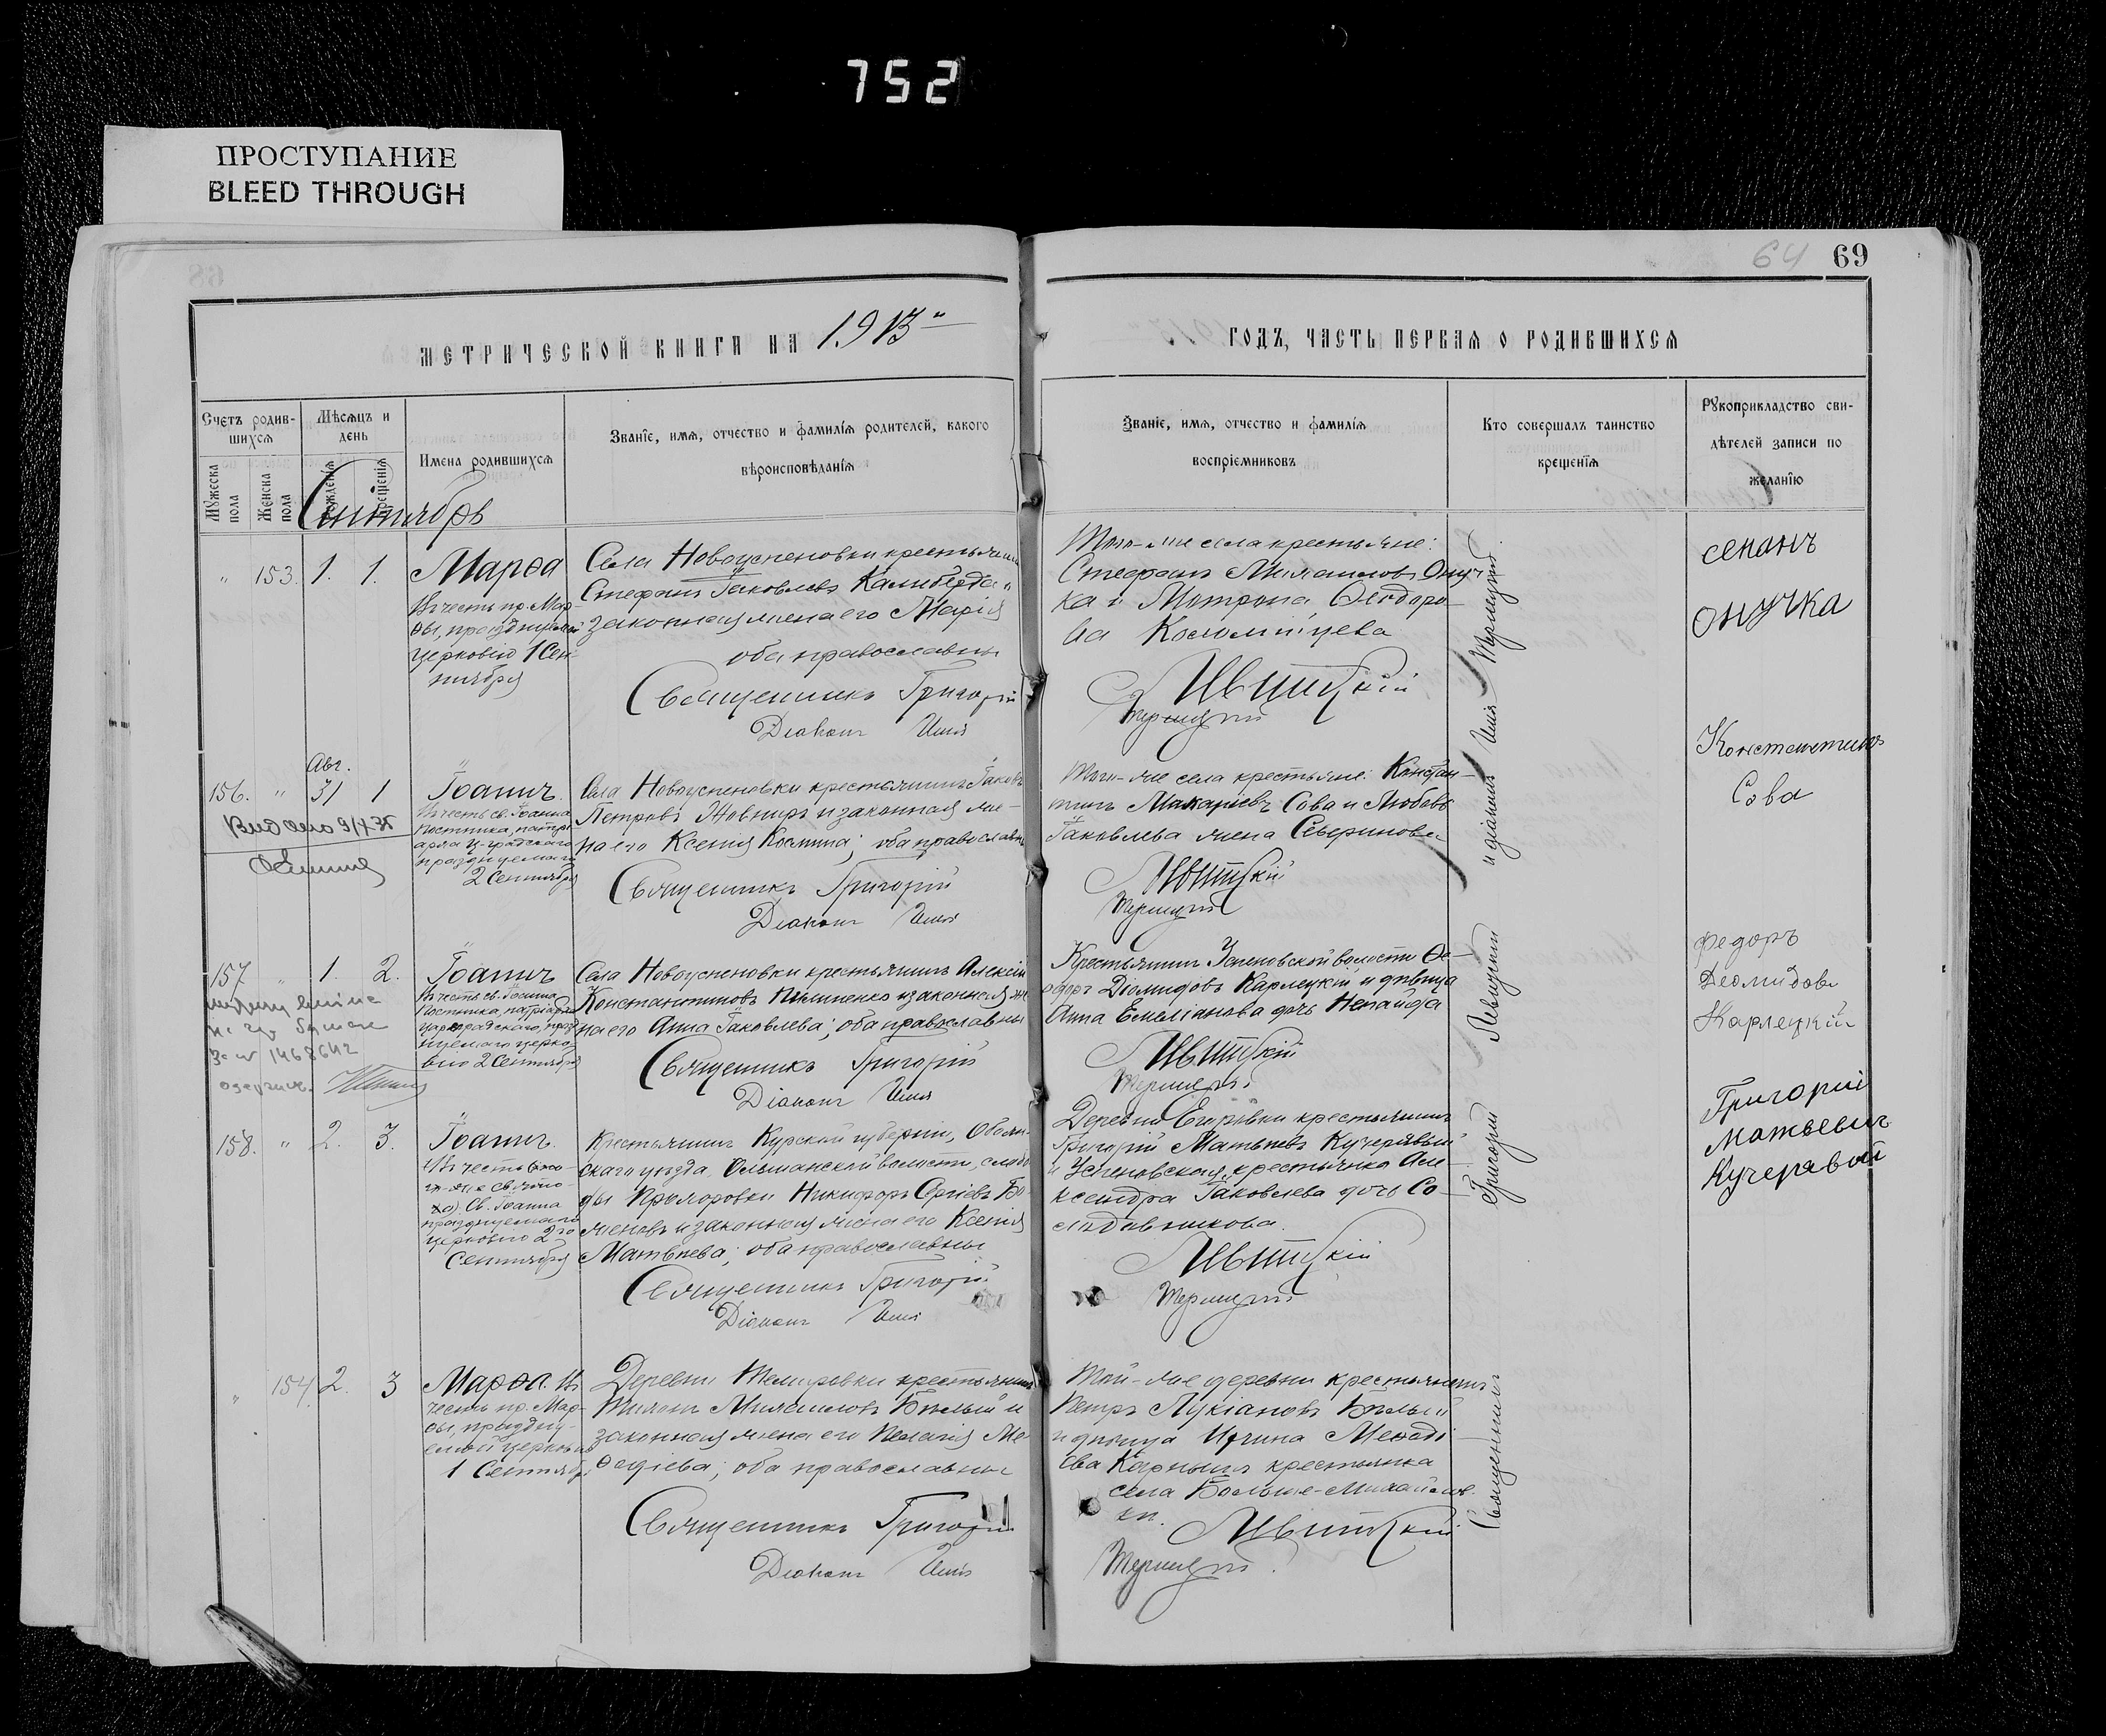 752
ПРОСТУПАНИЕ
BLEED THROUGH
64 69
МЕТРИЧЕСКОЙ КНИГИ НА 1913
ГОДЪ, ЧАСТЬ ПЕРВАЯ О РОДИВШИХСЯ
Счетъ родив-
шихся
Мѣсяцъ и
день
Мужеска
пола
Женска
пола
Рожденія
Крещенія
Имена родившихся
Званіе, имя, отчество и фамилія родителей, какого
вѣроисповѣданія
Званіе, имя, отчество и фамилія
воспріемниковъ
Кто совершалъ таинство
крещенія
Рукоприкладство сви-
дѣтелей записи по
желанію
Сентябрь
" 153. 1. 1.
Марѳа
Въ честь пр. Мар-
ѳы, празднуемой
церковію 1 Сен-
тября
Села Новоуспеновки крестьянинъ
Стефанъ Іаковлевъ Калиберда и
законная жена его Марія
оба православны
Священникъ Григорій
Діаконъ Илія
Того-же села крестьяне:
Стефанъ Михаиловъ Онуч-
ка и Матрона Ѳеодоро-
ва Коломійцева
Левитскій
сепанъ
ОНУЧКА
Авг.
156. " 31 1
Іоаннъ
Въ честь св. Іоанна
Постника, патрі-
арха Ц-градскаго
празднуемаго
2 Сентября
Села Новоуспеновки крестьянинъ Іаковъ
Петровъ Жовниръ и законная же-
на его Ксенія Космина; оба православны
Священникъ Григорій
Діаконъ Илія
Того-же села крестьяне: Констан-
тинъ Макаріевъ Сова и Любовь
Іаковлева жена Северинова
Левитскій
Константинъ
Сова
157 " 1. 2.
Іоаннъ
Въ честь св. Іоанна
Постника, патріарха
Цареградскаго, празд-
нуемаго церко-
вію 2 Сентября
Села Новоуспеновки крестьянинъ Алексій
Константиновъ Пилипенко и законная же-
на его Анна Іаковлева; оба православны
Священникъ Григорій
Діаконъ Илія
Крестьянинъ Успеновской волости Ѳе-
одоръ Діомидовъ Карлецкій и дѣвица
Анна Емеліанова дочь Непайда
Левитскій
Федоръ
Деомидовъ
Карлецкій
158. " 2. 3.
Іоаннъ
Св. Іоанна
празднуемаго
церковію 2го
Сентября
Крестьянинъ Курской губерніи, Обоян-
скаго уѣзда, Ольшанской волости, слобо-
ды Никифоръ Сергіевъ
и законная жена его Ксенія
Матѳѣева; оба православны
Священникъ Григорій
Діаконъ Илія
Деревни Егоровки крестьянинъ
Григорій Матѳѣевъ Кучерявый
и Успеновская крестьянка Але-
ксандра Іаковлева дочь Со-
лодовникова.
Левитскій
Григорій
Матвевичъ
Кучерявай
" 154. 2. 3
Марѳа. Въ
честь пр. Мар-
ѳы, праздну-
емой церковію
1 Сентября
Деревни крестьянинъ
Михаиловъ Бѣлый и
законная жена его Пелагія Ме-
ѳодіева; оба православны
Священникъ Григорій
Діаконъ Илія
Той-же деревни крестьянинъ
Петръ Лукіановъ Бѣлый
и дѣвица Ирина Меѳоді-
ева крестьянка
села Больше-Михайлов-
ки.
Левитскій
Священникъ Григорій Левицкій и діаконъ Илія